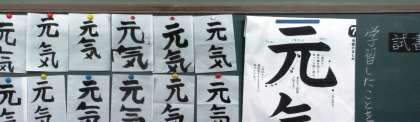 元気
元気
元気
元気
元気
元気
元気
元気
元気
元気
元気
元気
元気
学習したことを
試書